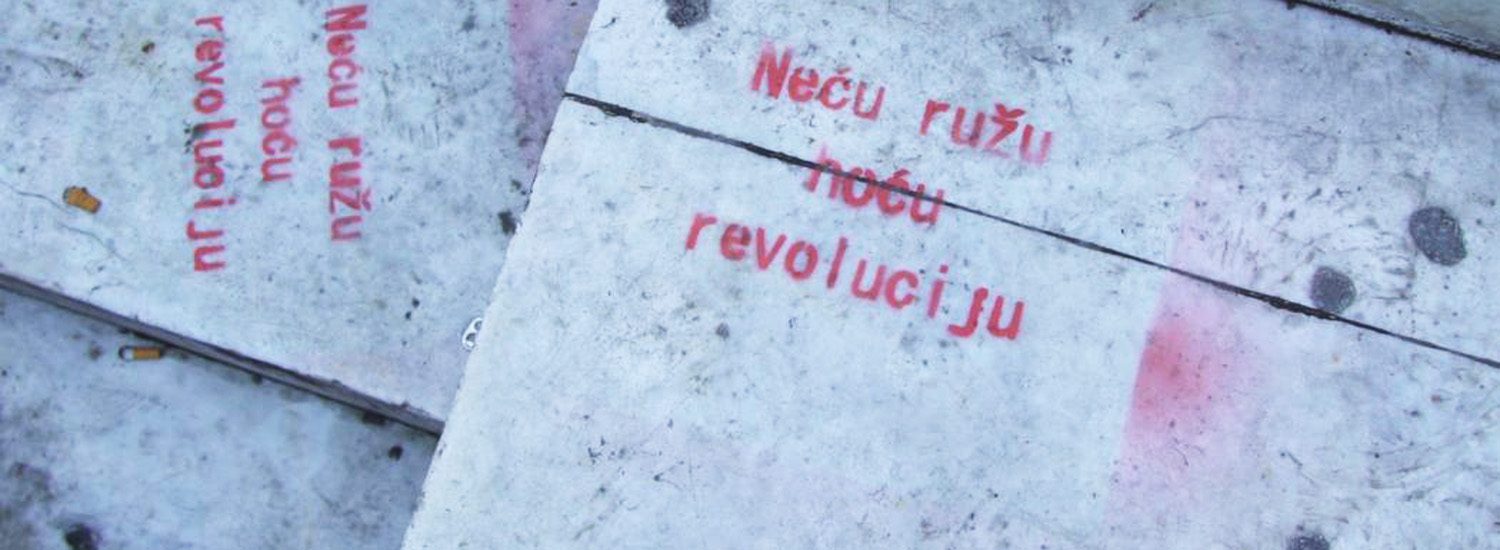 Neću ružu
hoću
revoluciju
Neću ružu
hoću
revoluciju